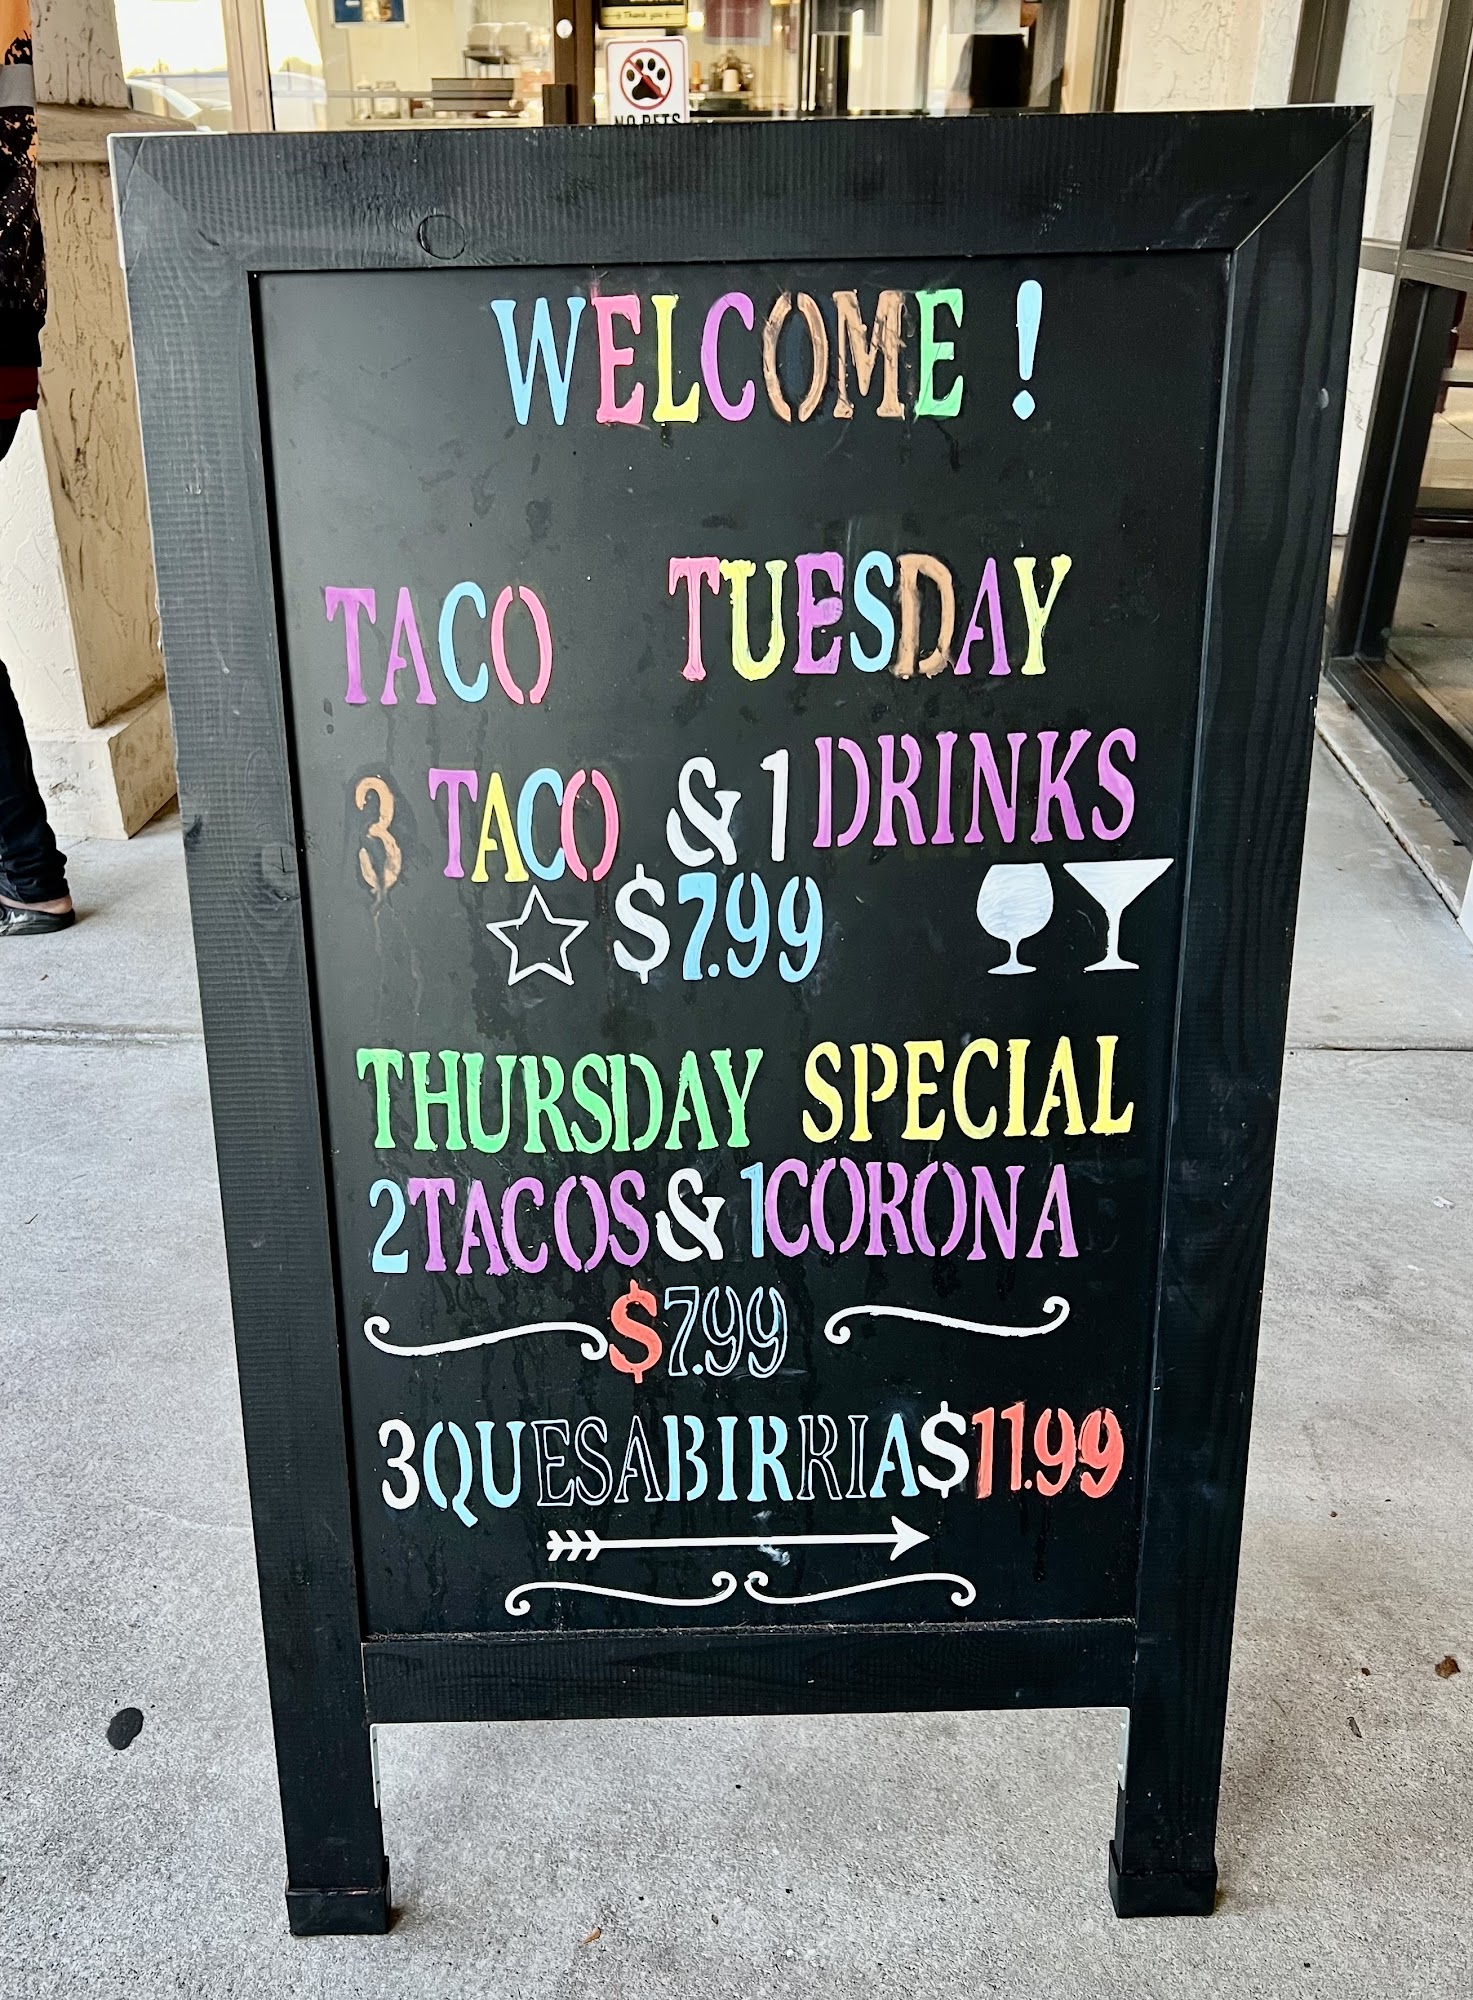 Thank you
NO PETS
WELCOME !
TACO TUESDAY
3 TACO & 1 DRINKS
$7.99
THURSDAY SPECIAL
2TACOS & 1CORONA
$7.99
3QUESABIRRIA$11.99